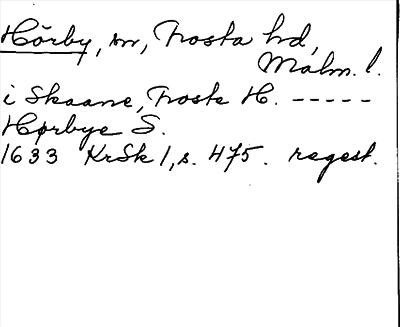 Hörby, sn, Frosta hd,
Malm. l.
i Skaane, Froste H. -----
Hørbye S.
1633 KrSk 1, s. 475. regest.